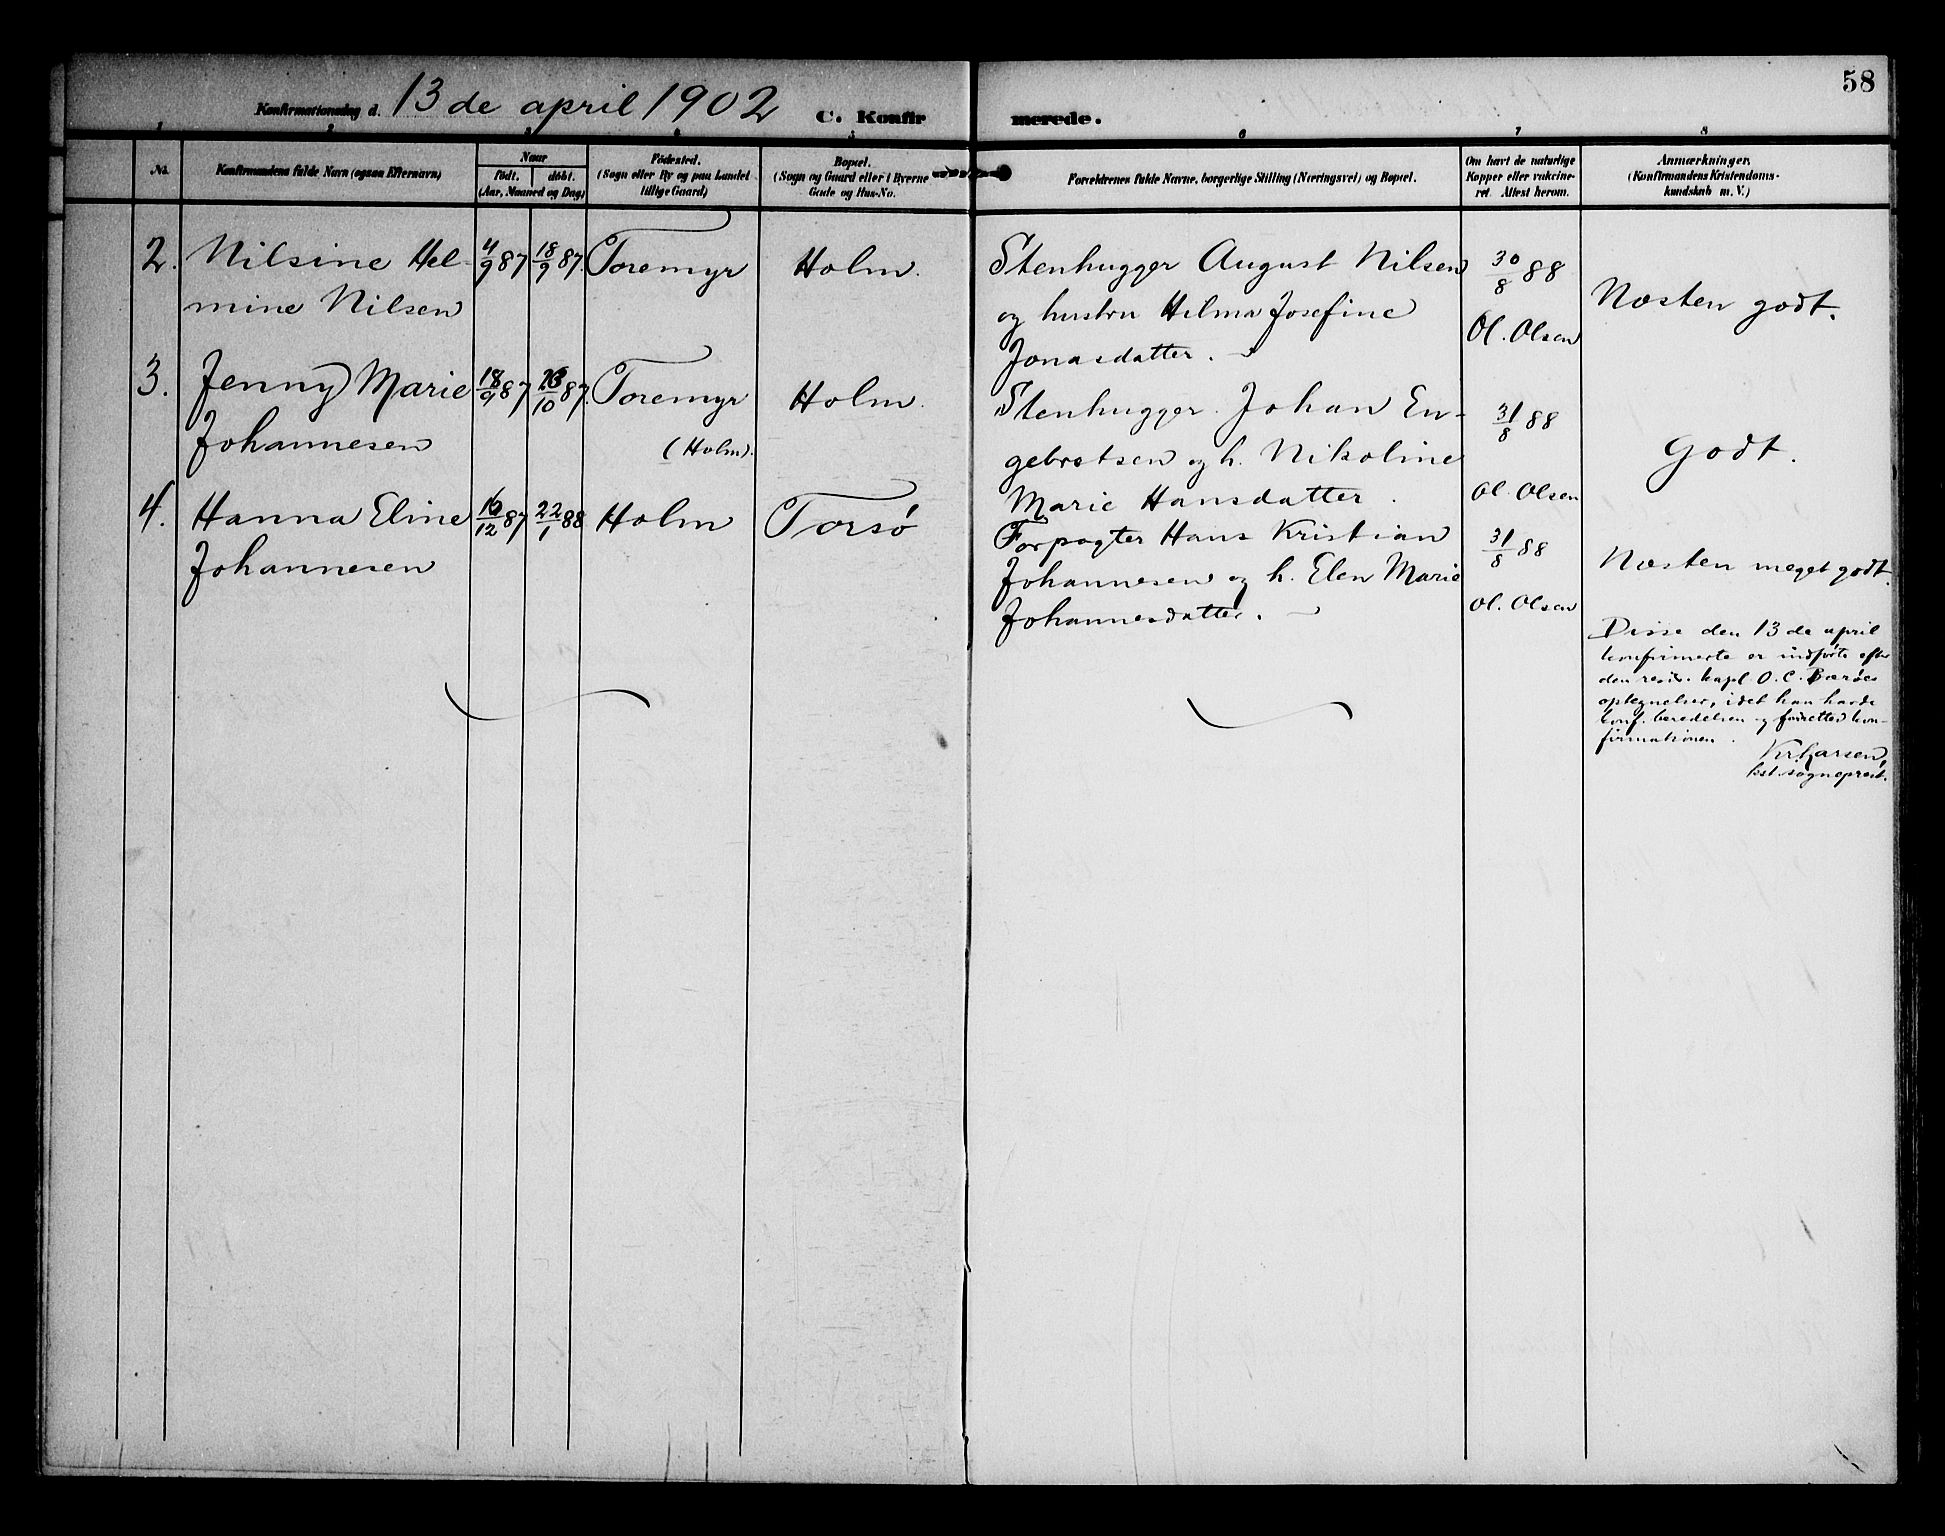 58
Konfirmationsdag d. 13 de april 1902 C. Konfirmerede.
1 2 3 4 5 6 7 8
No.
Konfirmandens fulde Navn (ogsaa Efternavn)
Naar
født. døbt.
(Aar, Maaned og Dag)
Fødested.
(Sogn eller By og paa Landet
tillige Gaard)
Bopæl.
(Sogn og Gaard eller i Byerne
Gade og Hus-No.
Forældrenes fulde Navne, borgerlige Stilling (Næringsvei) og Bopæl.
Om havt de naturlige
Kopper eller vakcine-
ret. Attest herom.
Anmærkninger.
(Konfirmandens Kristendoms-
kundskab m. V.)
2. Nilsine Hel-
mine Nilsen
4/9 87 18/9 87. Toremyr Holm.
Stenhugger August Nilsen
og hustru Helma Josefine
Jonasdatter.
30/8 88
Ol. Olsen
Næsten godt.
3. Jenny Marie
Johannesen
18/9 87 /10 87. Toremyr
(Holm).
Holm.
Stenhugger Johan En-
gebretsen og h. Nikoline
Marie Hansdatter.
31/8 88
Ol. Olsen
Godt.
4. Hanna Eline
Johannesen
16/12 87 22/1 88 Holm Torsø
Forpagter Hans Kristian
Johannesen og h. Elen Marie
Johannesdatter.
31/8 88
Ol. Olsen
Næsten meget godt.
Disse den 13 de april
konfirmerte er indførte efter
den resid. kapl. O. C. Bærøes
optegnelser, idet han havde
konf. beredelsen og forrettet kon-
firmationen.
Kr Larsen,
kst. sogneprest.